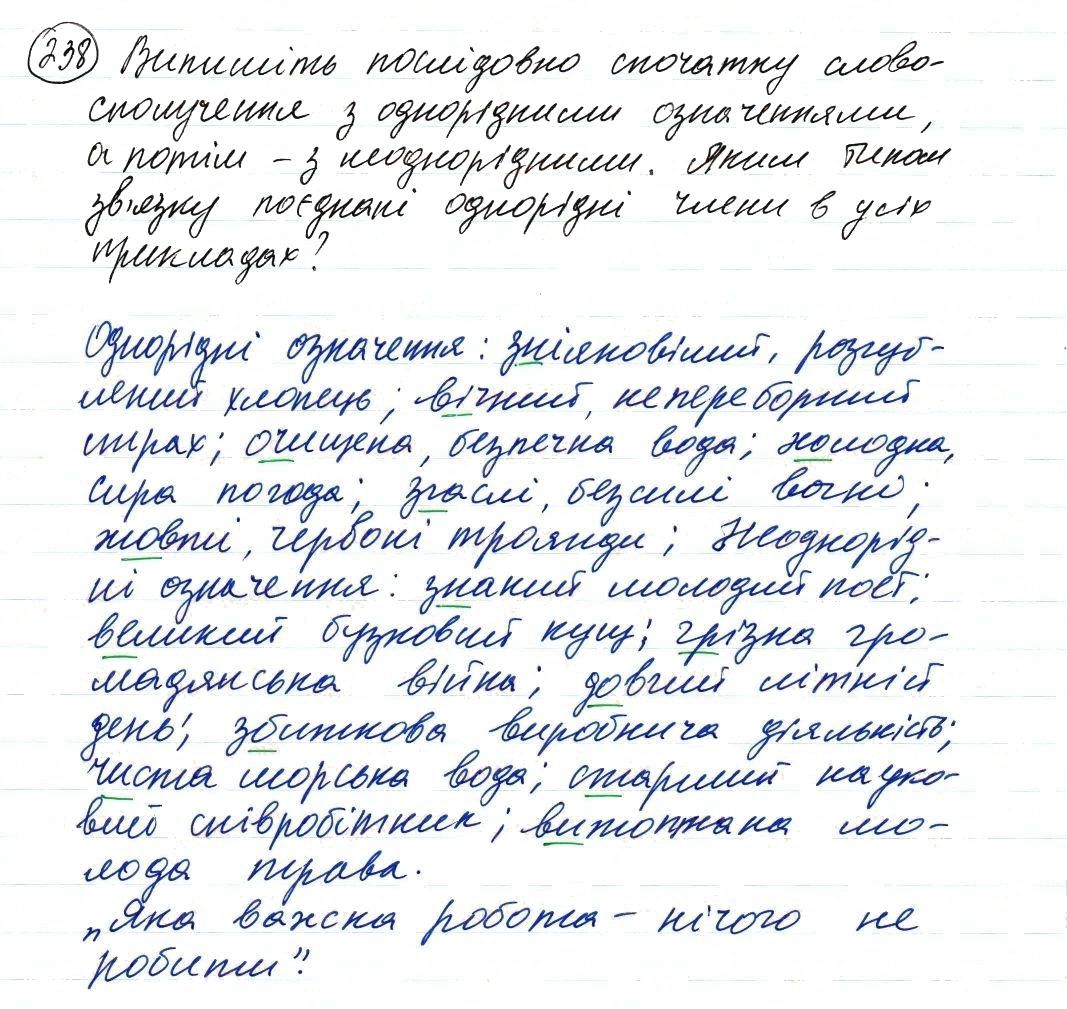 238 Випишіть послідовно спочатку слово-
сполучення з однорідними означеннями,
а потім – з неоднорідними. Яким типом
зв'язку поєднані однорідні члени в усіх
прикладах?
Однорідні означення: зніяковілий, розгуб-
лений хлопець; вічний, непереборний
страх; очищена, безпечна вода; холодна,
сира погода; згаслі, безсилі вогні;
жовті, червоні троянди; Неоднорід-
ні означення: знаний молодий поет;
великий бузковий кущ; грізна гро-
мадянська війна; довгий літній
день; збиткова виробнича діяльність;
чиста морська вода; старший науко-
вий співробітник; витоптана мо-
лода трава.
„Яка важка робота – нічого не
робити".